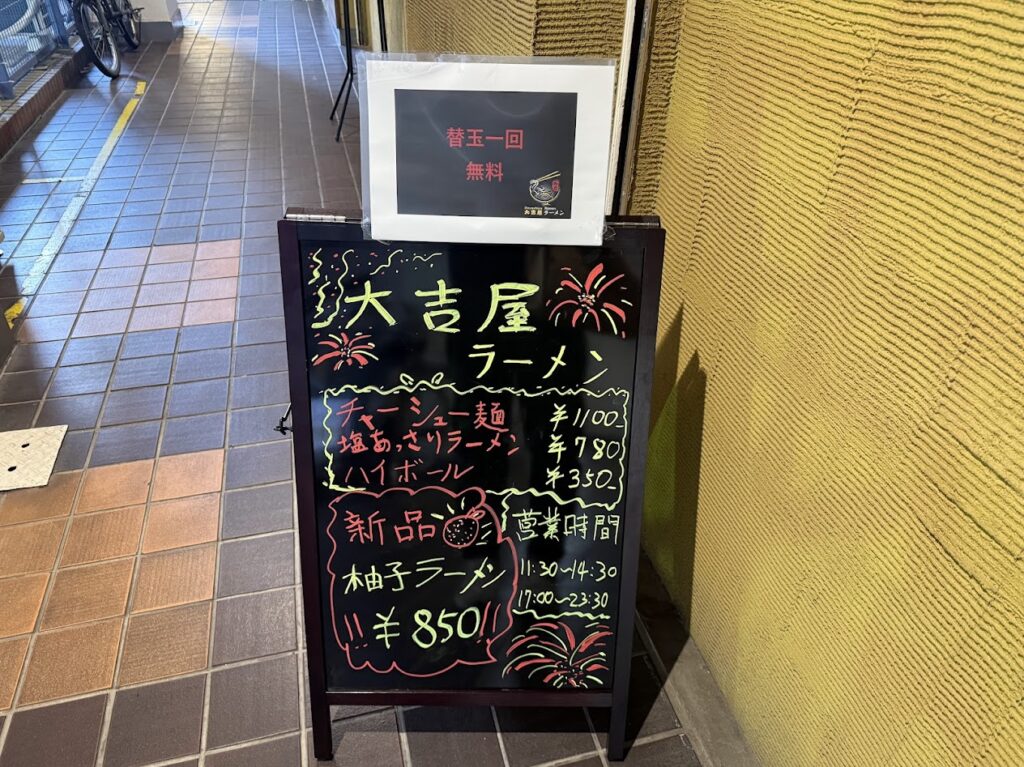 替玉一回
無料
大吉屋ラーメン
大吉屋
ラーメン
チャーシュー麺 ¥1100-
塩あっさりラーメン ¥780
ハイボール ¥350-
新品
柚子ラーメン
¥850
営業時間
11:30~14:30
17:00~23:30